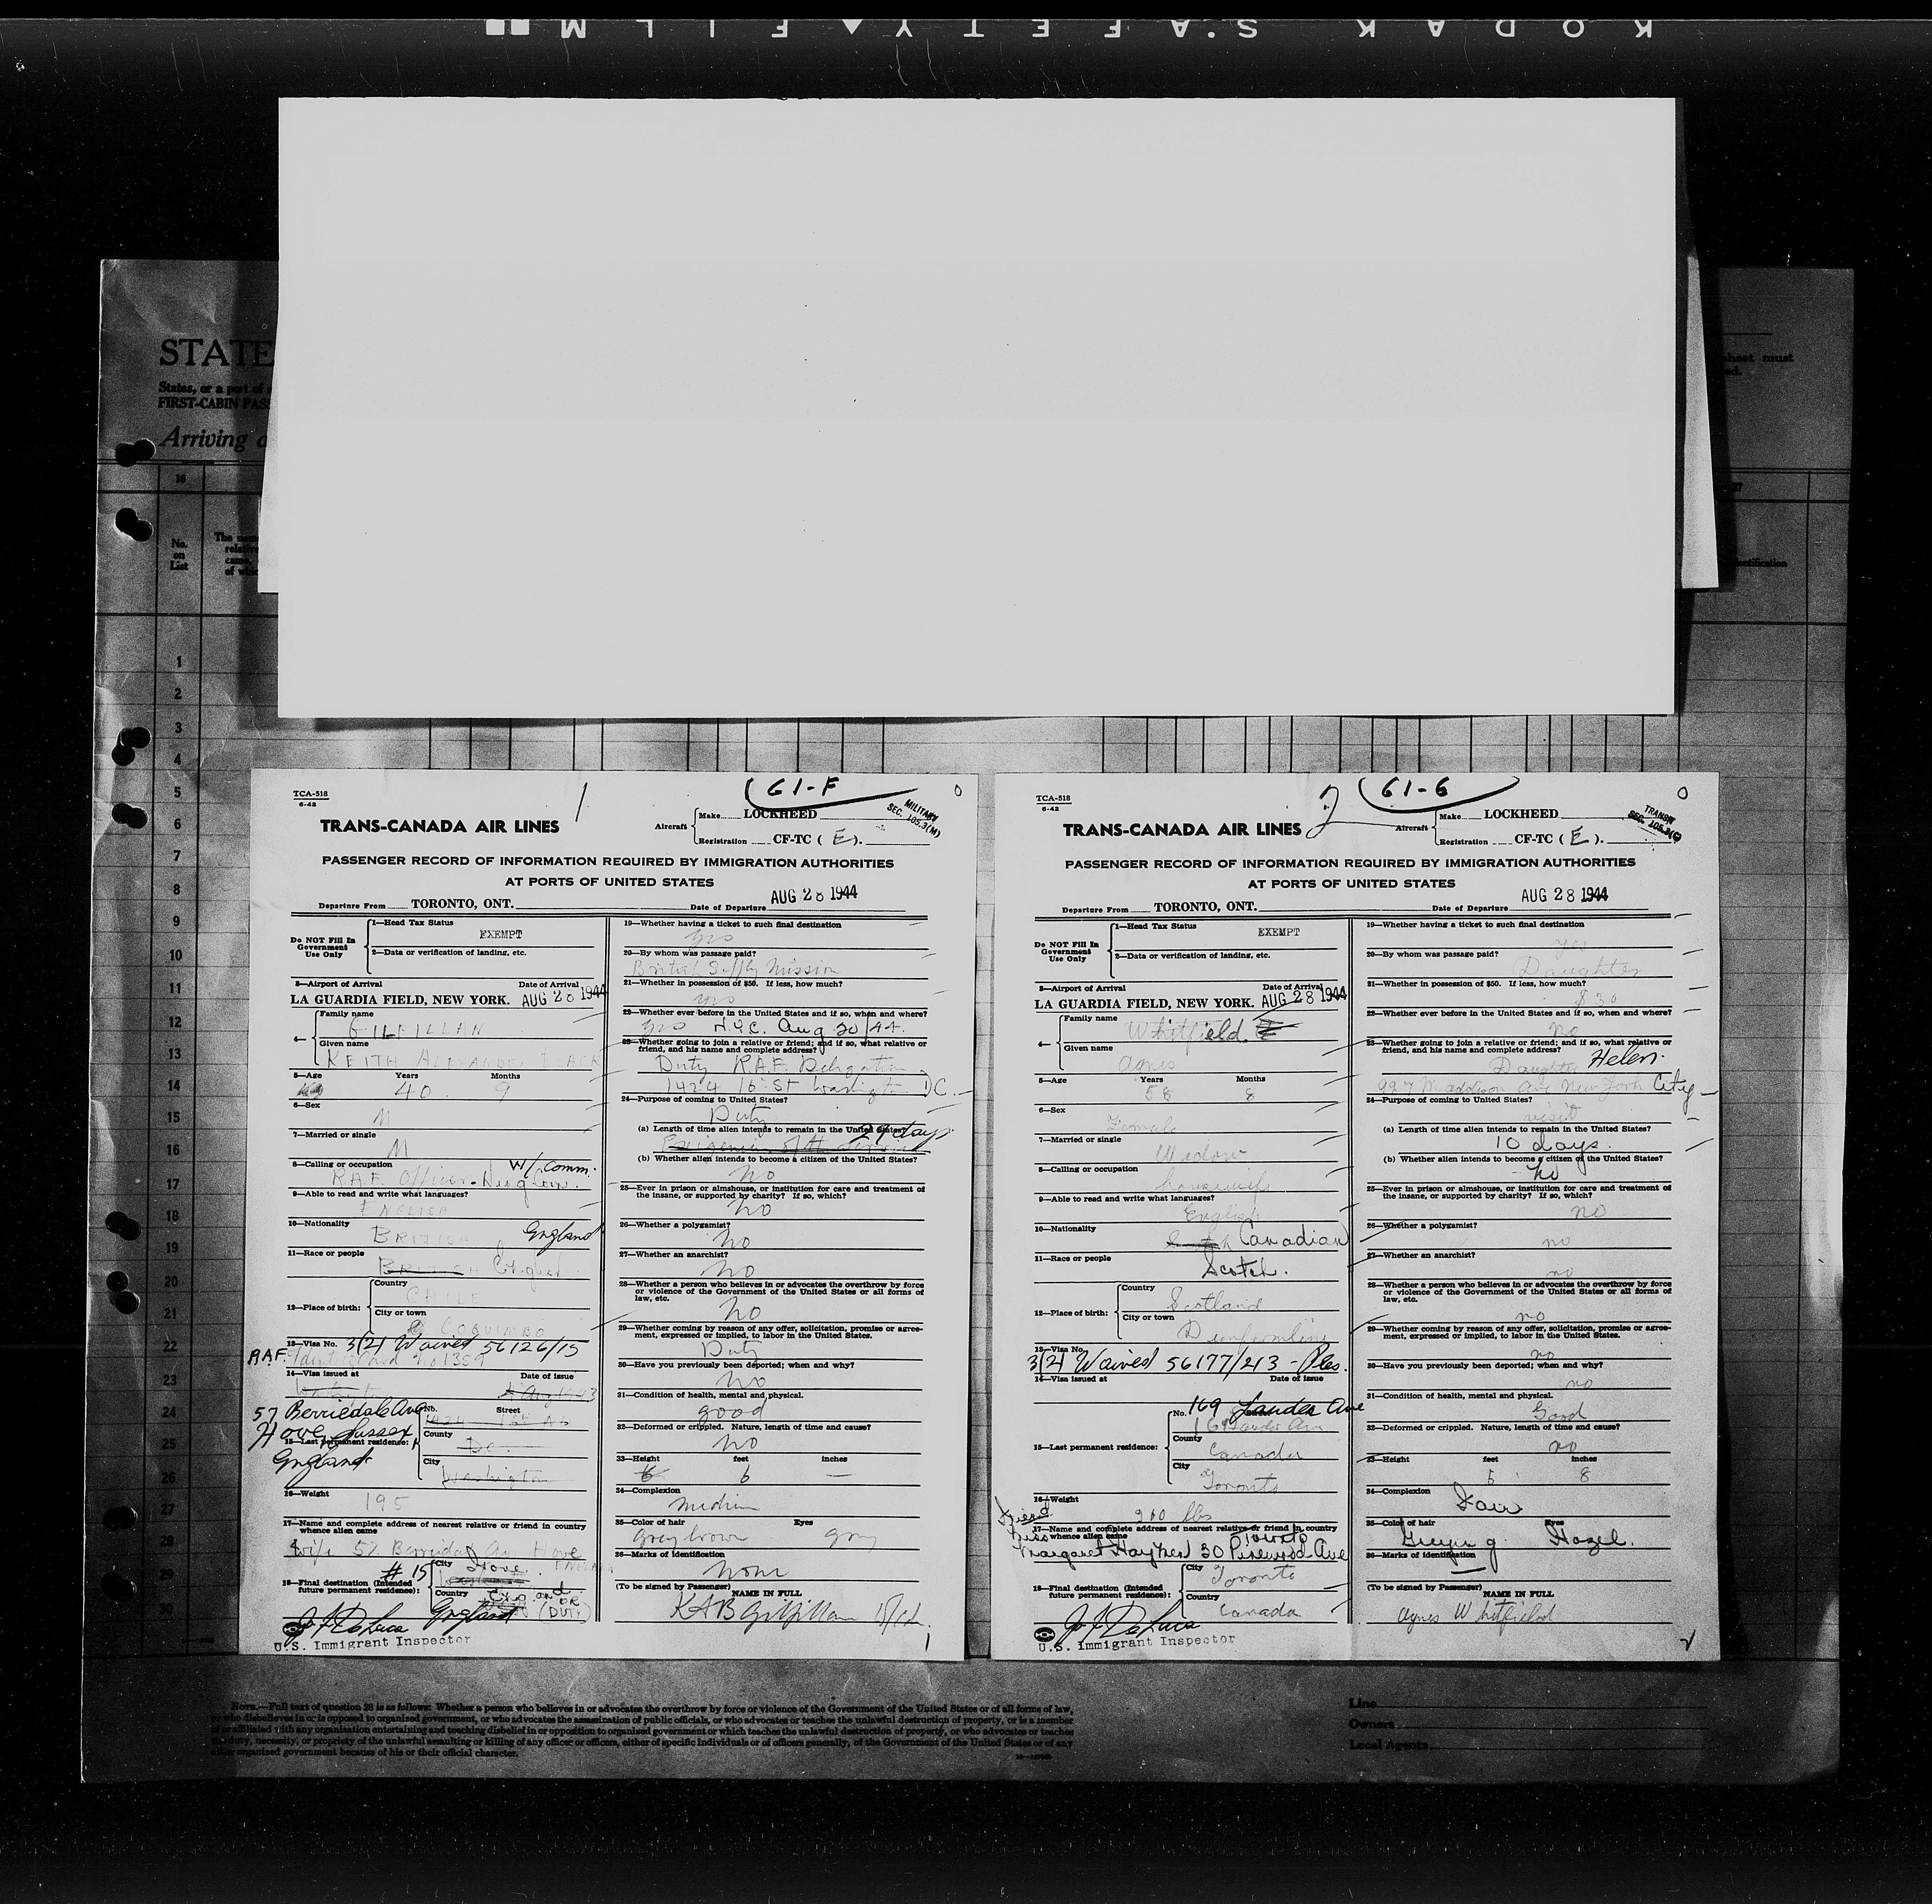 KODAK SAFETY FILM
STATE
States, or a part of
FIRST-CABIN PAS
Arriving
sheet must
16
No.
on
List
The
relative
came,
of
1
2
3
4
5
6
7
8
9
10
11
12
13
14
15
16
17
18
19
20
21
22
23
24
25
26
27
28
29
30
TCA-518
6-42
1
61-F
0
TRANS-CANADA AIR LINES
Aircraft
Make LOCKHEED
Registration CF-TC ( E ).
MILITARY
SEC. 105.3(M)
PASSENGER RECORD OF INFORMATION REQUIRED BY IMMIGRATION AUTHORITIES
AT PORTS OF UNITED STATES
Departure From TORONTO, ONT. Date of Departure AUG 28 1944
Do NOT Fill In
Government
Use Only
1—Head Tax Status
EXEMPT
2—Data or verification of landing, etc.
3—Airport of Arrival Date of Arrival
LA GUARDIA FIELD, NEW YORK. AUG 28 1944
4—
Family name
GILFILLAN
Given name
KEITH ALEXANDER
5—Age Years Months
40 9
6—Sex
M
7—Married or single
M
8—Calling or occupation W/Comm.
R.A.F. Officer
9—Able to read and write what languages?
ENGLISH
10—Nationality
BRITISH England
11—Race or people
BRITISH English
12—Place of birth:
Country
CHILE
City or town
COQUIMBO
13—Visa No. 3(2) Waived 56126/15
R.A.F. Ident Card No 1359
14—Visa issued at Date of issue
57 Berriedale Ave
Hove, Sussex
England
15—Last permanent residence:
No. Street
1424 16th
County
City
Washington
16—Weight
195
17—Name and complete address of nearest relative or friend in country
whence alien came
wife 57 Berriedale Av Hove
# 15
18—Final destination (Intended
future permanent residence):
City
Hove
Country
England (DUTY)
J. F. De Luca
U.S. Immigrant Inspector
19—Whether having a ticket to such final destination
yes
20—By whom was passage paid?
British Supply Mission
21—Whether in possession of $50. If less, how much?
yes
22—Whether ever before in the United States and if so, when and where?
yes N.Y.C. Aug 20/44.
23—Whether going to join a relative or friend; and if so, what relative or
friend, and his name and complete address?
Duty R.A.F. Delegation
1424 16 St Washington DC.
24—Purpose of coming to United States?
Duty
(a) Length of time alien intends to remain in the United States?
29 days
(b) Whether alien intends to become a citizen of the United States?
No
25—Ever in prison or almshouse, or institution for care and treatment of
the insane, or supported by charity? If so, which?
No
26—Whether a polygamist?
No
27—Whether an anarchist?
No
28—Whether a person who believes in or advocates the overthrow by force
or violence of the Government of the United States or all forms of
law, etc.
No
29—Whether coming by reason of any offer, solicitation, promise or agree-
ment, expressed or implied, to labor in the United States.
Duty
30—Have you previously been deported; when and why?
No
31—Condition of health, mental and physical.
good
32—Deformed or crippled. Nature, length of time and cause?
No
33—Height feet inches
6 —
34—Complexion
medium
35—Color of hair Eyes
grey brown grey
36—Marks of identification
none
(To be signed by Passenger) NAME IN FULL
KAB Gilfillan
1
TCA-518
6-42
2
61-G
0
TRANS-CANADA AIR LINES
Aircraft
Make LOCKHEED
Registration CF-TC ( E ).
TRANSIT
SEC. 105.3(C)
PASSENGER RECORD OF INFORMATION REQUIRED BY IMMIGRATION AUTHORITIES
AT PORTS OF UNITED STATES
Departure From TORONTO, ONT. Date of Departure AUG 28 1944
Do NOT Fill In
Government
Use Only
1—Head Tax Status
EXEMPT
2—Data or verification of landing, etc.
3—Airport of Arrival Date of Arrival
LA GUARDIA FIELD, NEW YORK. AUG 28 1944
4—
Family name
Whitfield
Given name
Agnes
5—Age Years Months
58 8
6—Sex
Female
7—Married or single
Widow
8—Calling or occupation
housewife
9—Able to read and write what languages?
English
10—Nationality
Scotch Canadian
11—Race or people
Scotch.
12—Place of birth:
Country
Scotland
City or town
Dunfermline
13—Visa No.
3(2) Waived 56177/213 -
14—Visa issued at Date of issue
15—Last permanent residence:
No. 169 Lauder Ave
169 Lauder Ave
County
Canada
City
Toronto
16—Weight
200 lbs
Friend
Miss
17—Name and complete address of nearest relative or friend in country
whence alien came
Toronto
Margaret Hayhen 30 Pinewood Ave
18—Final destination (Intended
future permanent residence):
City
Toronto
Country
Canada
J. F. De Luca
U.S. Immigrant Inspector
19—Whether having a ticket to such final destination
yes
20—By whom was passage paid?
Daughter
21—Whether in possession of $50. If less, how much?
$30
22—Whether ever before in the United States and if so, when and where?
no
23—Whether going to join a relative or friend; and if so, what relative or
friend, and his name and complete address?
Daughter Helen.
927 Maddison Ave New York City
24—Purpose of coming to United States?
visit
(a) Length of time alien intends to remain in the United States?
10 days.
(b) Whether alien intends to become a citizen of the United States?
no
25—Ever in prison or almshouse, or institution for care and treatment of
the insane, or supported by charity? If so, which?
no
26—Whether a polygamist?
no
27—Whether an anarchist?
no
28—Whether a person who believes in or advocates the overthrow by force
or violence of the Government of the United States or all forms of
law, etc.
no
29—Whether coming by reason of any offer, solicitation, promise or agree-
ment, expressed or implied, to labor in the United States.
no
30—Have you previously been deported; when and why?
no
31—Condition of health, mental and physical.
Good
32—Deformed or crippled. Nature, length of time and cause?
no
33—Height feet inches
5 8
34—Complexion
Fair
35—Color of hair Eyes
Greying Hazel.
36—Marks of identification
—
(To be signed by Passenger) NAME IN FULL
Agnes Whitfield
2
NOTE.—Full text of question 28 is as follows: Whether a person who believes in or advocates the overthrow by force or violence of the Government of the United States or of all forms of law,
or who disbelieves in or is opposed to organized government, or who advocates the assassination of public officials, or who advocates or teaches the unlawful destruction of property, or is a member
of or affiliated with any organization entertaining and teaching disbelief in or opposition to organized government or which teaches the unlawful destruction of property, or who advocates or teaches
the duty, necessity, or propriety of the unlawful assaulting or killing of any officer or officers, either of specific individuals or of officers generally, of the Government of the United States or of any
other organized government because of his or their official character.
Line
Owners
Local Agents